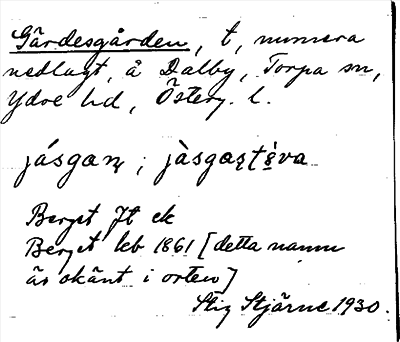 Gärdesgården, t, numera
nedlagt, å Dalby, Torpa sn,
Ydre hd, Österg. l.
jásgaṇ; jàsgaṣtə̀va
Berget Jt ek
Berget leb 1861 [detta namn
är okänt i orten]
Stig Stjärne 1930.